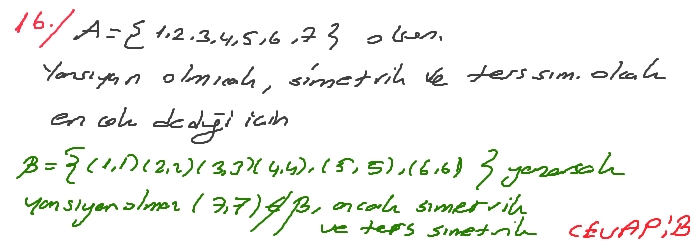 16./ A={ 1,2,3,4,5,6,7 } olsun.
Yansıyan olmıcak, simetrik ve ters sim. olcak
en çok dediği için
β={(1,1)(2,2)(3,3)(4,4),(5,5),(6,6) } yazarsak
yansıyan olmaz (7,7)∉β, ancak simetrik
ve ters simetrik CEVAP:B